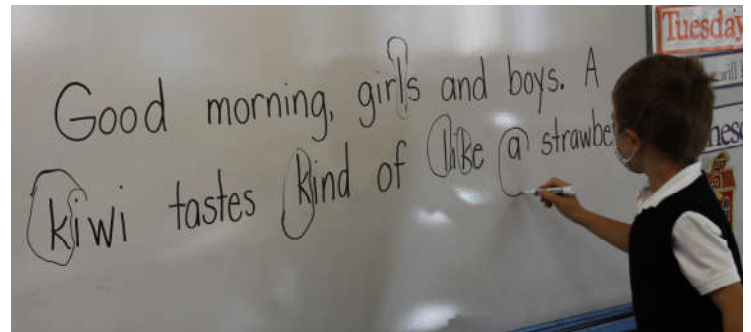 Good morning, girls and boys. A
kiwi tastes kind of like a strawbe
Tuesday
will
nesd